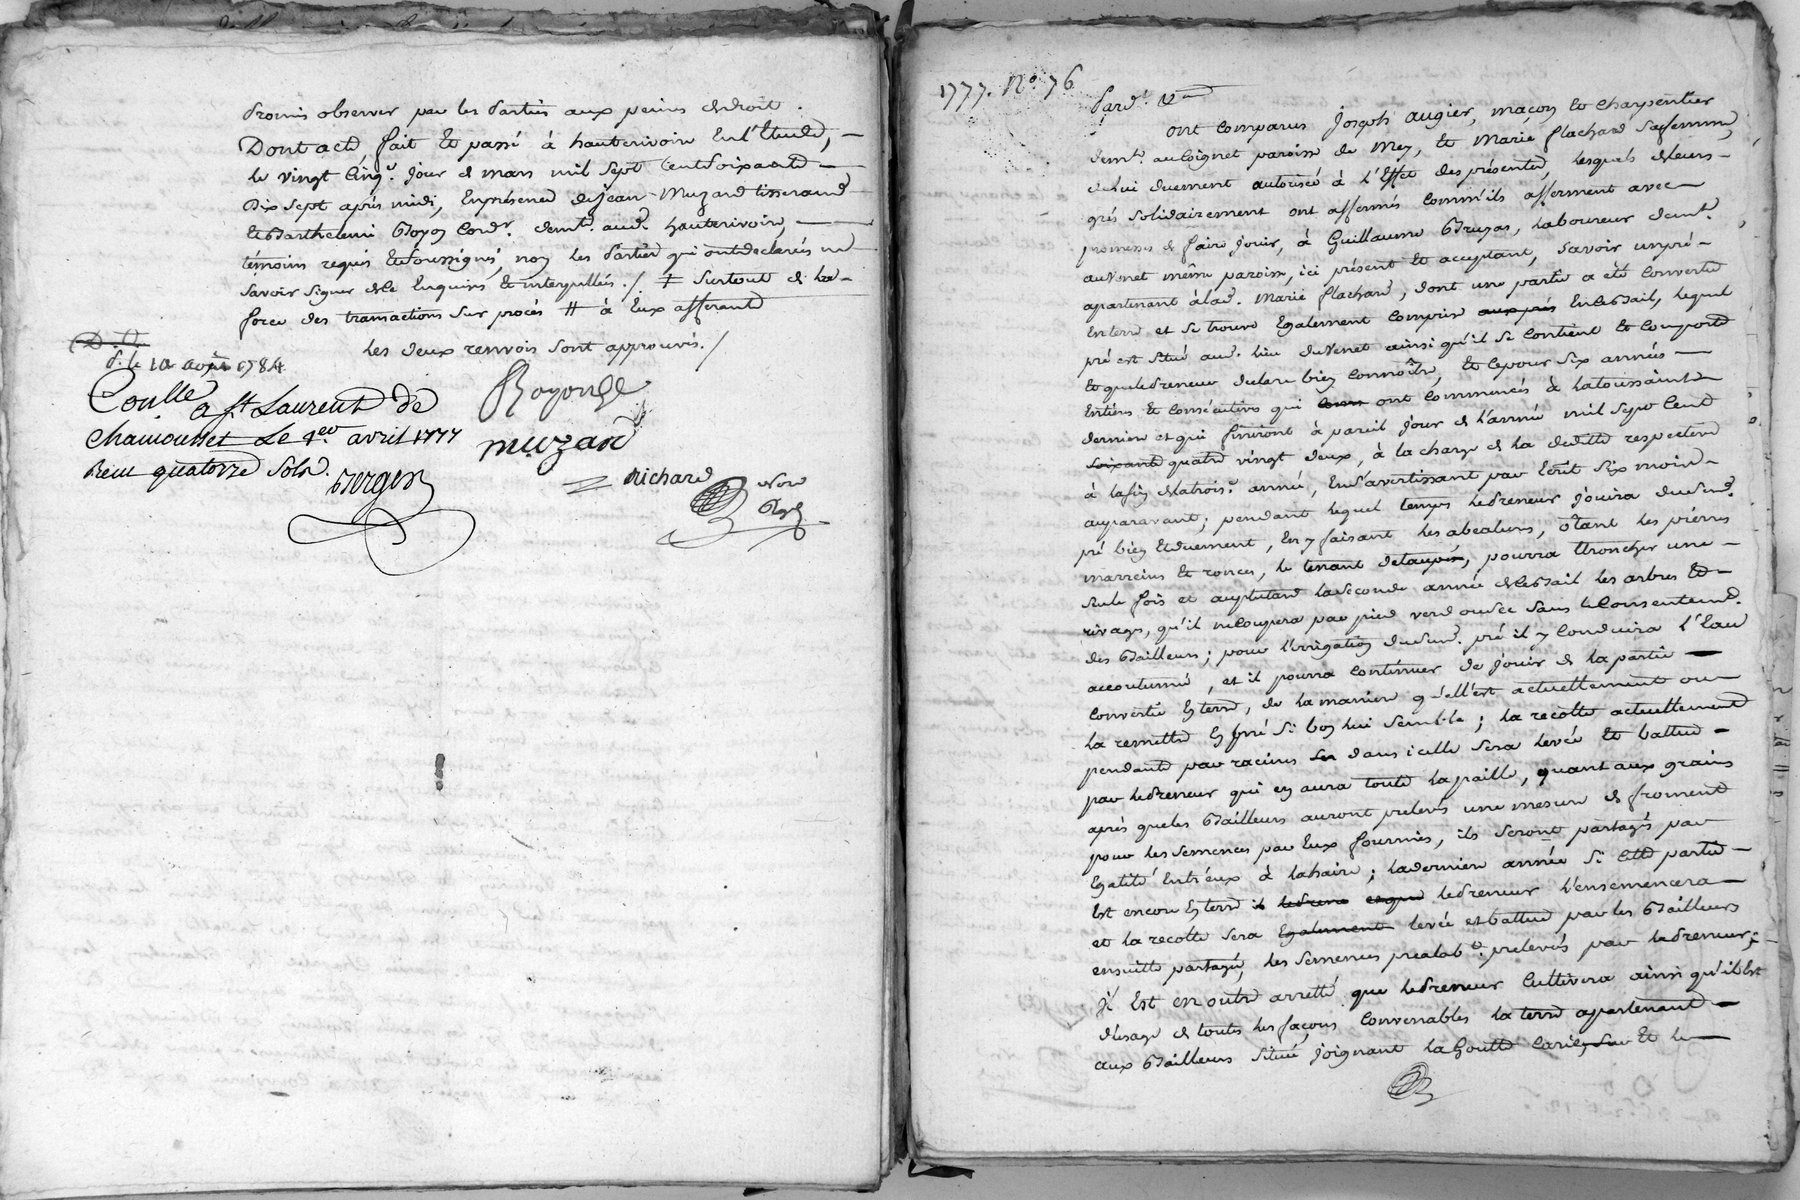 Promis observer par les Parties aux peines de droit.
Dont acte fait et passé à hauterivoire En l'Etude,
le vingt Cinq.e jour de mars mil Sept Cent Soixante
Dix Sept après midi, En présence de Jean Muzard tisserand
et Barthelemi Boyon Cord.r demt. aud. hauterivoire,
témoins requis et soussignés, non les Parties qui ont declarés ne
Savoir Signer de ce Enquises et interpellées./. ‡ Surtout de la
force des transactions Sur procès # à Eux afférante
les deux renvois sont approuvés./
D. le 10 août 1784
Conllé a St Laurent de
Chamousset Le 1er avril 1777
Reçu quatorze Sols.
Berger
Muzard
Richard Nore
Royal
1777. No. 76
Pard.t
ont comparus Joseph augier, maçon et charpentier
demt. au Coignet paroisse de Mey, et Marie flachard Sa femme,
de lui duement autorisée à l'Effet des présentes, lesquels de leurs
grés solidairement ont affermés comm'ils afferment avec
promesses de faire jouir, à Guillaume Bruyas, laboureur demt.
au Venet même paroisse, ici présent et acceptant, Savoir un pré
apartenant à lad. Marie flachard, dont une partie a été Convertie
En terre et se trouve Egalement comprise En ce Bail, lequel
pré est situé aud. lieu du Venet ainsi qu'il se Contient et Comporte
et que le Preneur declare bien Connoître, et ce pour six années
Entieres et Consécutives qui ont Commencés à la toussaint
derniere et qui finiront à pareil jour de l'année mil Sept Cent
quatre vingt deux, à la charge de la dedite respective
à la fin de la trois.e année, En S'avertissant par Ecrit Six mois
auparavant; pendant lequel temps le Preneur jouira dud.
pré bien et duement, En y faisant les abealures, ôtant les pierres
marreins et ronces, le tenant detaupé, pourra ttroncher une
Seule fois et au plutard la Seconde année de ce Bail les arbres et
rivages, qu'il ne Coupera par pied verd ou Sec Sans le Consentemt.
des Bailleurs; pour l'irrigation dud. pré il y Conduira l'Eau
accoutumée, et il pourra Continuer de jouir de la partie
Convertie En terre, de la maniere qu'ell'est actuellement ou
la remettre En pré Si bon lui Semble; la recolte actuellement
pendante par racines dans icelle Sera levée et battue
par le Preneur qui en aura toute la paille, quant aux grains
après que les Bailleurs auront prelevés une mesure de froment
pour les Semences par Eux fournies, ils seront partagés par
Egalité Entr'eux à l'haire; la derniere année Si cette partie
Est encore En terre le Preneur l'ensemencera
et la recolte sera Egalement levée et battue par les Bailleurs
ensuitte partagée, les Semences prealab.t prelevées par le Preneur;
Il Est en outre arretté que le Preneur Cultivera ainsi qu'il Est
d'usage de toutes les façons Convenables la terre apartenante
aux Bailleurs Située joignant la Goutte et le